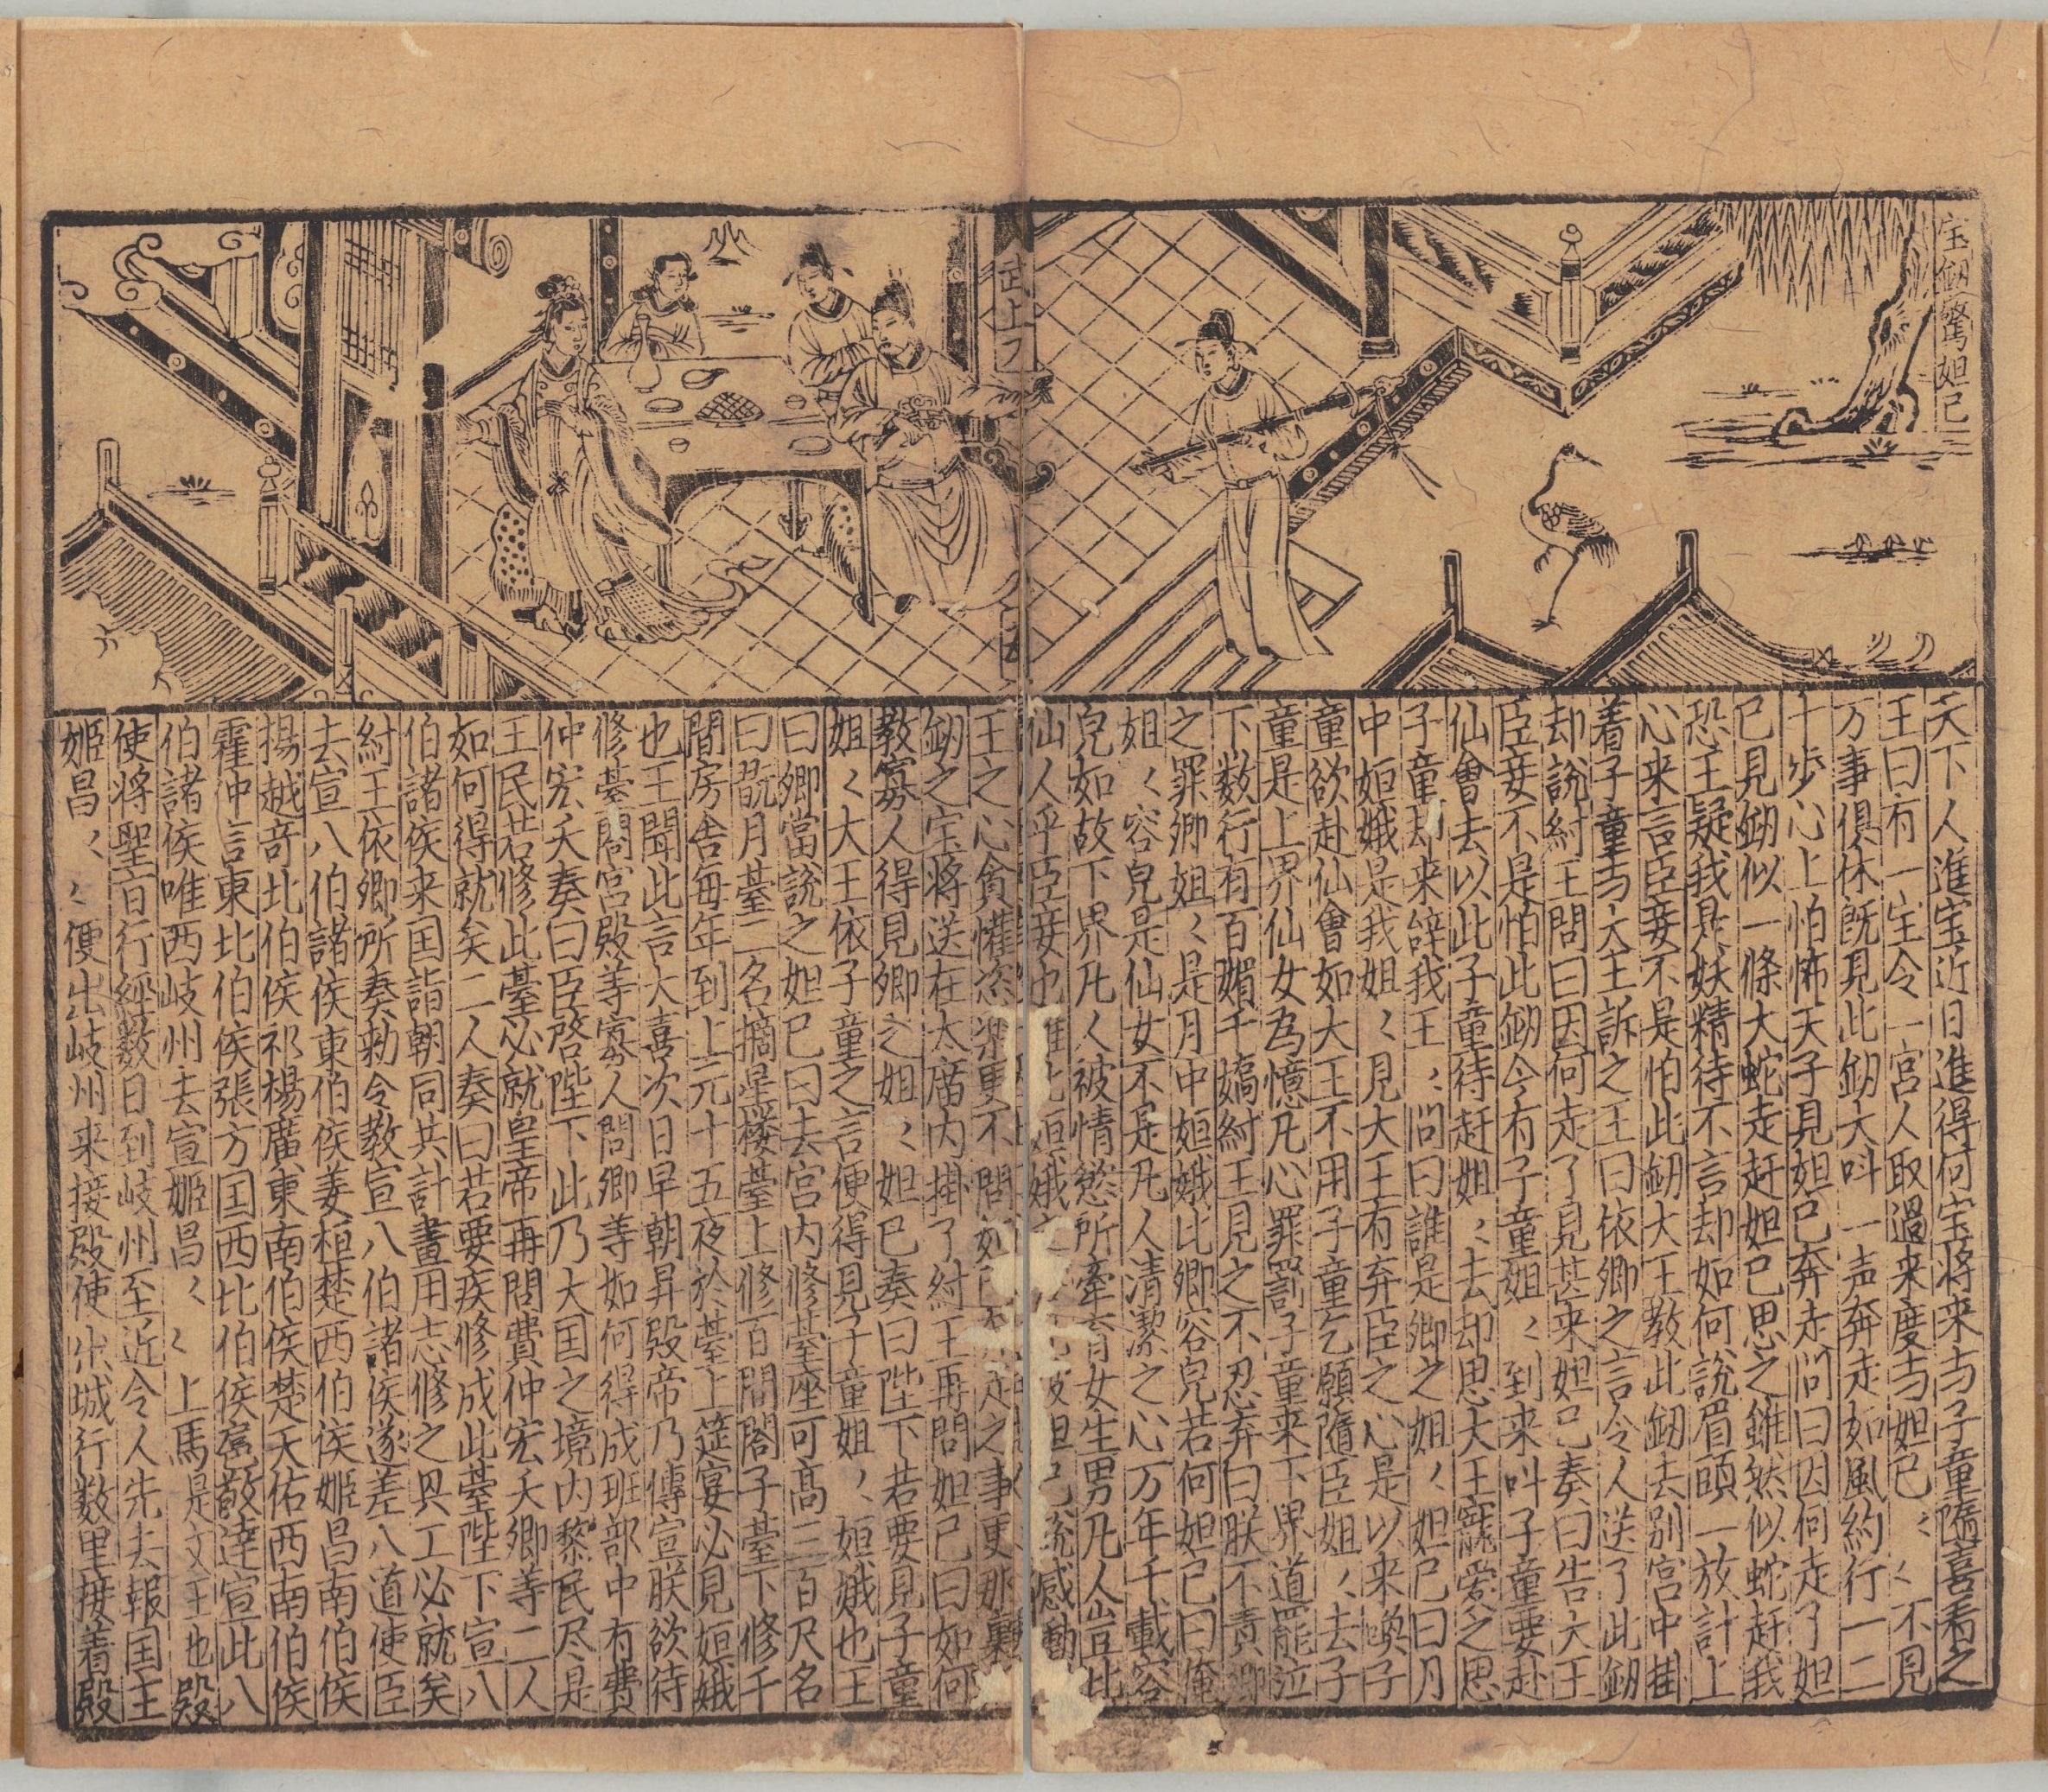 宝釼驚妲己
天下人進宝近日進得何宝将来与子童隨喜看之
王曰有一宝令一宮人取過来度与妲己〻〻不見
万事俱休既見此釼大叫一声奔走如風約行一二
十歩心上怕怖天子見妲己奔走问曰因何走了妲
己見釼似一條大蛇走赶妲己思之雖然似蛇赶我
恐王疑我是妖精待不言却如何說眉頭一放計上
心来言臣妾不是怕此釼大王教此釼去别宮中掛
着子童与大王訴之王曰依卿之言令人送了此釼
却說紂王問曰因何走了見甚来妲己奏曰告大王
臣妾不是怕此釼今有子童姐〻到来叫子童要赴
仙會去以此子童待赶姐〻去却思大王寵爱之思
子童却来辞我王〻问曰誰是卿之姐〻妲己曰月
中姮娥是我姐〻見大王有弃臣之心是以来喚子
童欲赴仙會如大王不用子童乞願隨臣姐〻去子
童是上界仙女為憶凡心罪罰子童来下界道罷泣
下数行有百媚千嬌紂王見之不忍弃曰朕不責卿
之罪卿姐〻是月中姮娥比卿容皃若何妲己曰俺
姐〻容皃是仙女不是凡人清潔之心万年千載容
皃如故下界凡人被情慾所牽育女生男凡人豈比
仙人乎臣妾也 姮娥 妲己 感動
王之心貪懽恣楽更不問 之事更那襄
釼之宝将送在太廣内掛了紂王再問妲己曰如何
教寡人得見卿之姐〻妲己奏曰陛下若要見子童
姐〻大王依子童之言便得見子童姐〻姮娥也王
曰卿當說之妲己曰去宮内修臺座可高三百尺名
曰翫月臺二名摘星楼臺上修百間閣子臺下修千
間房舎每年到上元十五夜於臺上筵宴必見姮娥
也王聞此言大喜次日早朝昇殿帝乃傳宣朕欲待
修臺閣宮殿等寡人問卿等如何得成班部中有費
仲宏夭奏曰臣啓陛下此乃大国之境内黎民尽是
王民若修此臺必就皇帝再問費仲宏夭卿等二人
如何得就矣二人奏曰若要疾修成此臺陛下宣八
伯諸侯来国詣朝同共計畫用志修之興工必就矣
紂王依卿所奏勅令教宣八伯諸侯遂差八道使臣
去宣八伯諸侯東伯侯姜桓楚西伯侯姬昌南伯侯
揚越竒北伯侯祁楊廣東南伯侯楚天佑西南伯侯
霍仲言東北伯侯張方国西北伯侯扈敬達宣此八
伯諸侯唯西岐州去宣姬昌〻〻上馬是文王也殿
使将聖旨行經数日到岐州至近令人先去報国主
姬昌〻〻便出岐州来接殿使出城行数里接着殿